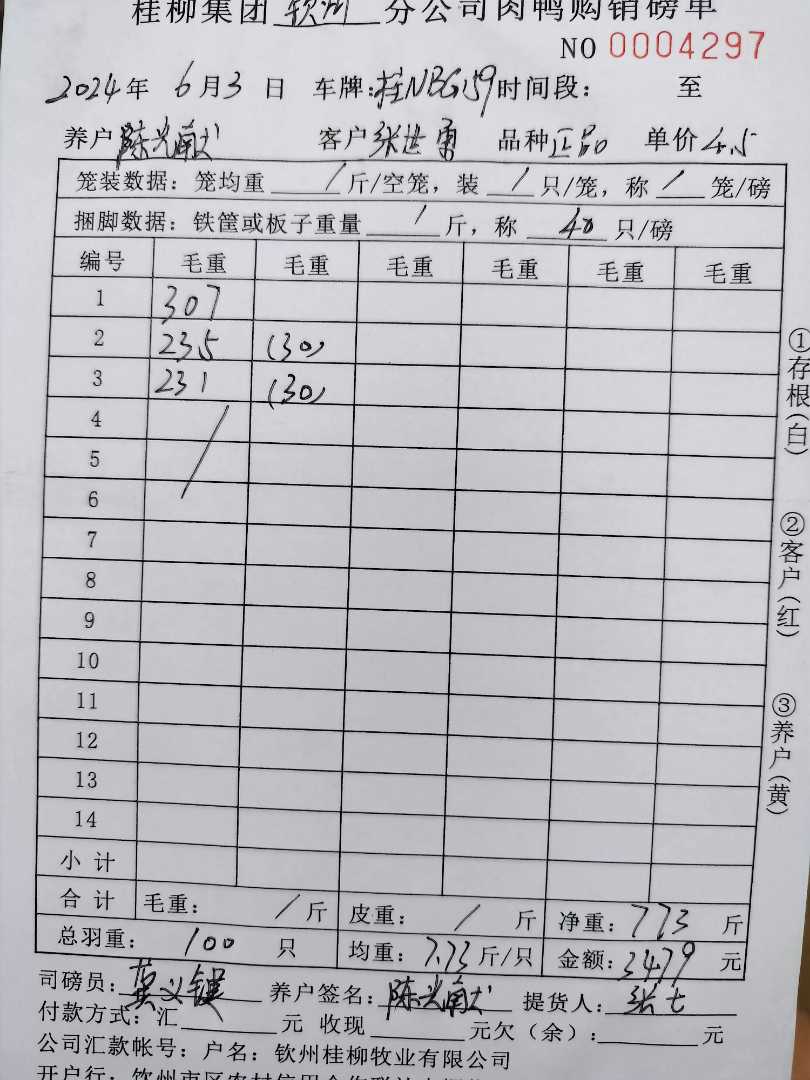 桂柳集团 钦州 分公司肉鸭购销磅单
NO 0004297
2024年 6月3日 车牌:桂NBG159 时间段: 至
养户 陈光南 客户 张世勇 品种 正品 单价 4.5
笼装数据: 笼均重 / 斤/空笼, 装 / 只/笼, 称 / 笼/磅
捆脚数据: 铁筐或板子重量 / 斤, 称 40 只/磅
编号 毛重 毛重 毛重 毛重 毛重 毛重
1 307
2 235 (30)
3 231 (30)
4 /
5
6
7
8
9
10
11
12
13
14
小 计
合 计 毛重: / 斤 皮重: / 斤 净重: 773 斤
总羽重: 100 只 均重: 7.73 斤/只 金额: 3479 元
司磅员: 养户签名: 陈光南 提货人: 张七
付款方式: 汇 元 收现 元欠(余): 元
公司汇款帐号: 户名: 钦州桂柳牧业有限公司
开户行: 钦州市区农村信用合作联社
①存根(白)
②客户(红)
③养户(黄)